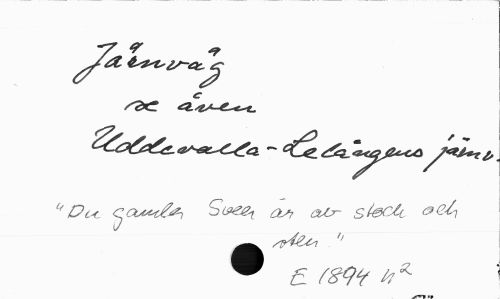 Järnväg
se även
Uddevalla-Lelångens järnv.
"Du gamla Svea är av stock och
sten."
E 1894 n²